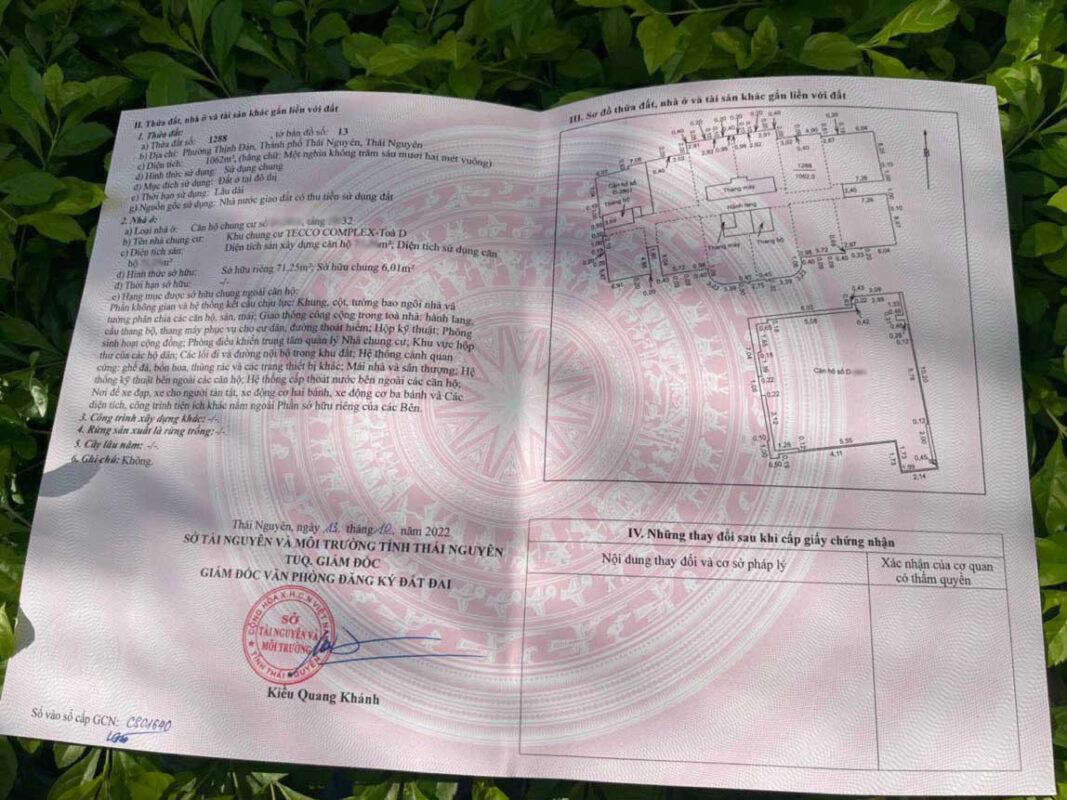 II. Thửa đất, nhà ở và tài sản khác gắn liền với đất
1. Thửa đất:
a) Thửa đất số: 1288 , tờ bản đồ số: 13
b) Địa chỉ: Phường Thịnh Đán, Thành phố Thái Nguyên, Thái Nguyên
c) Diện tích: 1062m², (bằng chữ: Một nghìn không trăm sáu mươi hai mét vuông)
d) Hình thức sử dụng: Sử dụng chung
đ) Mục đích sử dụng: Đất ở tại đô thị
e) Thời hạn sử dụng: Lâu dài
g) Nguồn gốc sử dụng: Nhà nước giao đất có thu tiền sử dụng đất
2. Nhà ở:
a) Loại nhà ở: Căn hộ chung cư số tầng 32
b) Tên nhà chung cư: Khu chung cư TECCO COMPLEX-Toà D
c) Diện tích sàn: Diện tích sàn xây dựng căn hộ m²; Diện tích sử dụng căn
hộ m²
d) Hình thức sở hữu: Sở hữu riêng 71,25m²; Sở hữu chung 6,01m²
đ) Thời hạn sở hữu: -/-
e) Hạng mục được sở hữu chung ngoài căn hộ:
Phần không gian và hệ thống kết cấu chịu lực: Khung, cột, tường bao ngôi nhà và
tường phân chia các căn hộ, sàn, mái; Giao thông công cộng trong toà nhà: hành lang,
cầu thang bộ, thang máy phục vụ cho cư dân, đường thoát hiểm; Hộp kỹ thuật; Phòng
sinh hoạt cộng đồng; Phòng điều khiển trung tâm quản lý Nhà chung cư; Khu vực hộp
thư của các hộ dân; Các lối đi và đường nội bộ trong khu đất; Hệ thống cảnh quan
cứng: ghế đá, bồn hoa, thùng rác và các trang thiết bị khác; Mái nhà và sân thượng; Hệ
thống kỹ thuật bên ngoài các căn hộ; Hệ thống cấp thoát nước bên ngoài các căn hộ;
Nơi để xe đạp, xe cho người tàn tật, xe động cơ hai bánh, xe động cơ ba bánh và Các
diện tích, công trình tiện ích khác nằm ngoài Phần sở hữu riêng của các Bên.
3. Công trình xây dựng khác: -/-
4. Rừng sản xuất là rừng trồng: -/-
5. Cây lâu năm: -/-
6. Ghi chú: Không.
Thái Nguyên, ngày 13 tháng 10 năm 2022
SỞ TÀI NGUYÊN VÀ MÔI TRƯỜNG TỈNH THÁI NGUYÊN
TUQ. GIÁM ĐỐC
GIÁM ĐỐC VĂN PHÒNG ĐĂNG KÝ ĐẤT ĐAI
CỘNG HÒA X.H.C.N VIỆT NAM
SỞ
TÀI NGUYÊN VÀ
MÔI TRƯỜNG
TỈNH THÁI NGUYÊN
Kiều Quang Khánh
Số vào sổ cấp GCN: CS01640
III. Sơ đồ thửa đất, nhà ở và tài sản khác gắn liền với đất
1288
1062,0
Căn hộ số
Thang bộ
Thang máy
Hành lang
Thang máy
Thang bộ
7,26
2,45
7,26
Căn hộ số D
6,02
5,08
0,43
3,09
0,22
2,88
1,33
0,42
7,04
5,78
10,20
3,12
0,22
0,12
2,00
0,45
1,28
5,55
4,11
6,50
1,73
1,73
1,99
2,14
IV. Những thay đổi sau khi cấp giấy chứng nhận
Nội dung thay đổi và cơ sở pháp lý
Xác nhận của cơ quan
có thẩm quyền